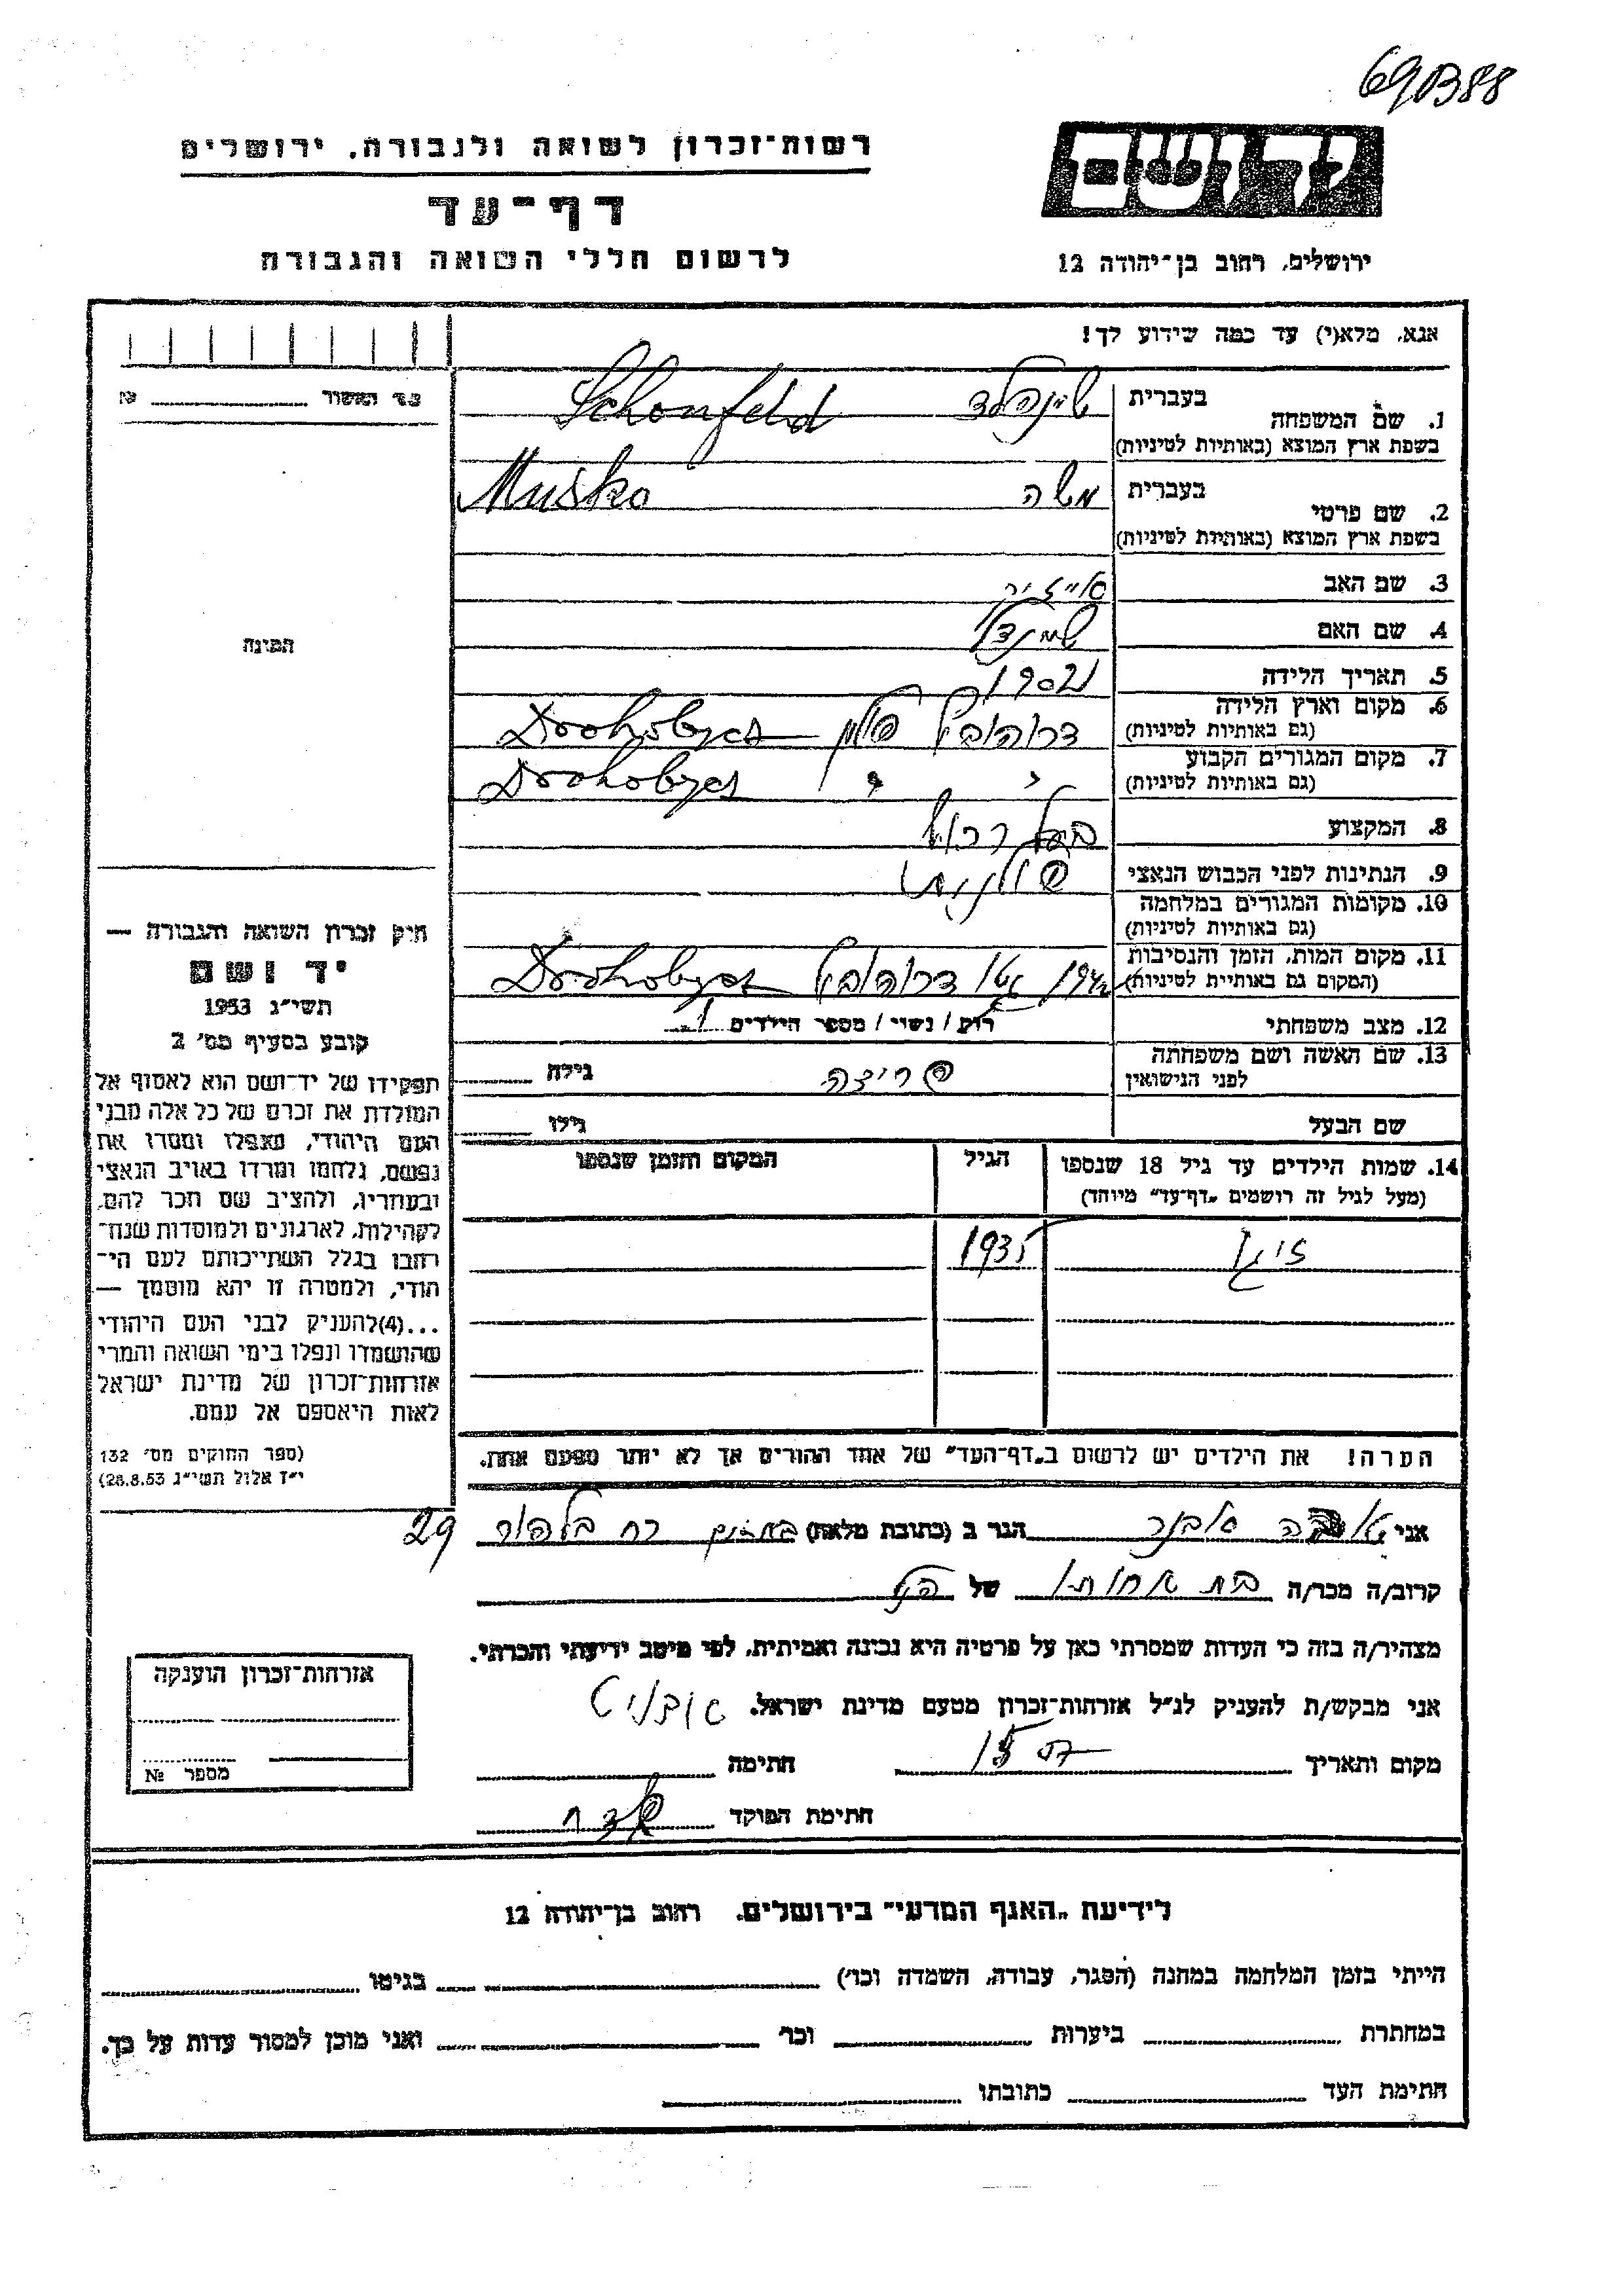 רשות־זכרון לשואה ולגבורה, ירושלים
דף־עד
לרשום חללי השואה והגבורה
יד ושם
ירושלים, רחוב בן־יהודה 12
אנא, מלא(י) עד כמה שידוע לך!
1. שם המשפחה
בעברית
שיינפלד Schonfeld
בשפת ארץ המוצא (באותיות לטיניות)
2. שם פרטי
בעברית
משה Musko
בשפת ארץ המוצא (באותיות לטיניות)
3. שם האב
4. שם האם
שיינדל
5. תאריך הלידה
6. מקום וארץ הלידה
(גם באותיות לטיניות)
דרוהוביץ פולין Drohobycs
7. מקום המגורים הקבוע
(גם באותיות לטיניות)
" " Drohobycs
8. המקצוע
בעל רכוש
9. הנתינות לפני הכבוש הנאצי
פולנית
10. מקומות המגורים במלחמה
(גם באותיות לטיניות)
11. מקום המות, הזמן והנסיבות
(המקום גם באותיות לטיניות)
גטו דרוהוביץ Drohobycs
12. מצב משפחתי
רוק / נשוי / מספר הילדים 1
13. שם האשה ושם משפחתה
לפני הנישואין
פרידה גילה
שם הבעל גילו
14. שמות הילדים עד גיל 18 שנספו
(מעל לגיל זה רושמים „דף־עד” מיוחד)
הגיל
המקום והזמן שנספו
1935
הערה! את הילדים יש לרשום ב„דף־העד” של אחד ההורים אך לא יותר מפעם אחת.
התמונה
חוק זכרון השואה והגבורה —
יד ושם
תשי״ג 1953
קובע בסעיף מס׳ 2
תפקידו של יד־ושם הוא לאסוף אל
המולדת את זכרם של כל אלה מבני
העם היהודי, שנפלו ומסרו את
נפשם, נלחמו ומרדו באויב הנאצי
ובעוזריו, ולהציב שם וזכר להם,
לקהילות, לארגונים ולמוסדות שנח־
רבו בגלל השתייכותם לעם הי־
הודי, ולמטרה זו יהא מוסמך —
...(4)להעניק לבני העם היהודי
שהושמדו ונפלו בימי השואה והמרי
אזרחות־זכרון של מדינת ישראל
לאות היאספם אל עמם.
(ספר החוקים מס׳ 132
י״ז אלול תשי״ג 28.8.53)
אני הגר ב (כתובת מלאה) רח בלפור 29
קרוב/ה מכר/ה בת אחותו של הנ״ל
מצהיר/ה בזה כי העדות שמסרתי כאן על פרטיה היא נכונה ואמיתית, לפי מיטב ידיעתי והכרתי.
אני מבקש/ת להעניק לנ״ל אזרחות־זכרון מטעם מדינת ישראל.
מקום ותאריך חתימה
חתימת הפוקד
אזרחות־זכרון הוענקה
מספר №
לידיעת „האגף המדעי” בירושלים, רחוב בן־יהודה 12
הייתי בזמן המלחמה במחנה (הסגר, עבודה, השמדה וכו׳) בגיטו
במחתרת ביערות וכו׳ ואני מוכן למסור עדות על כך.
חתימת העד כתובתו